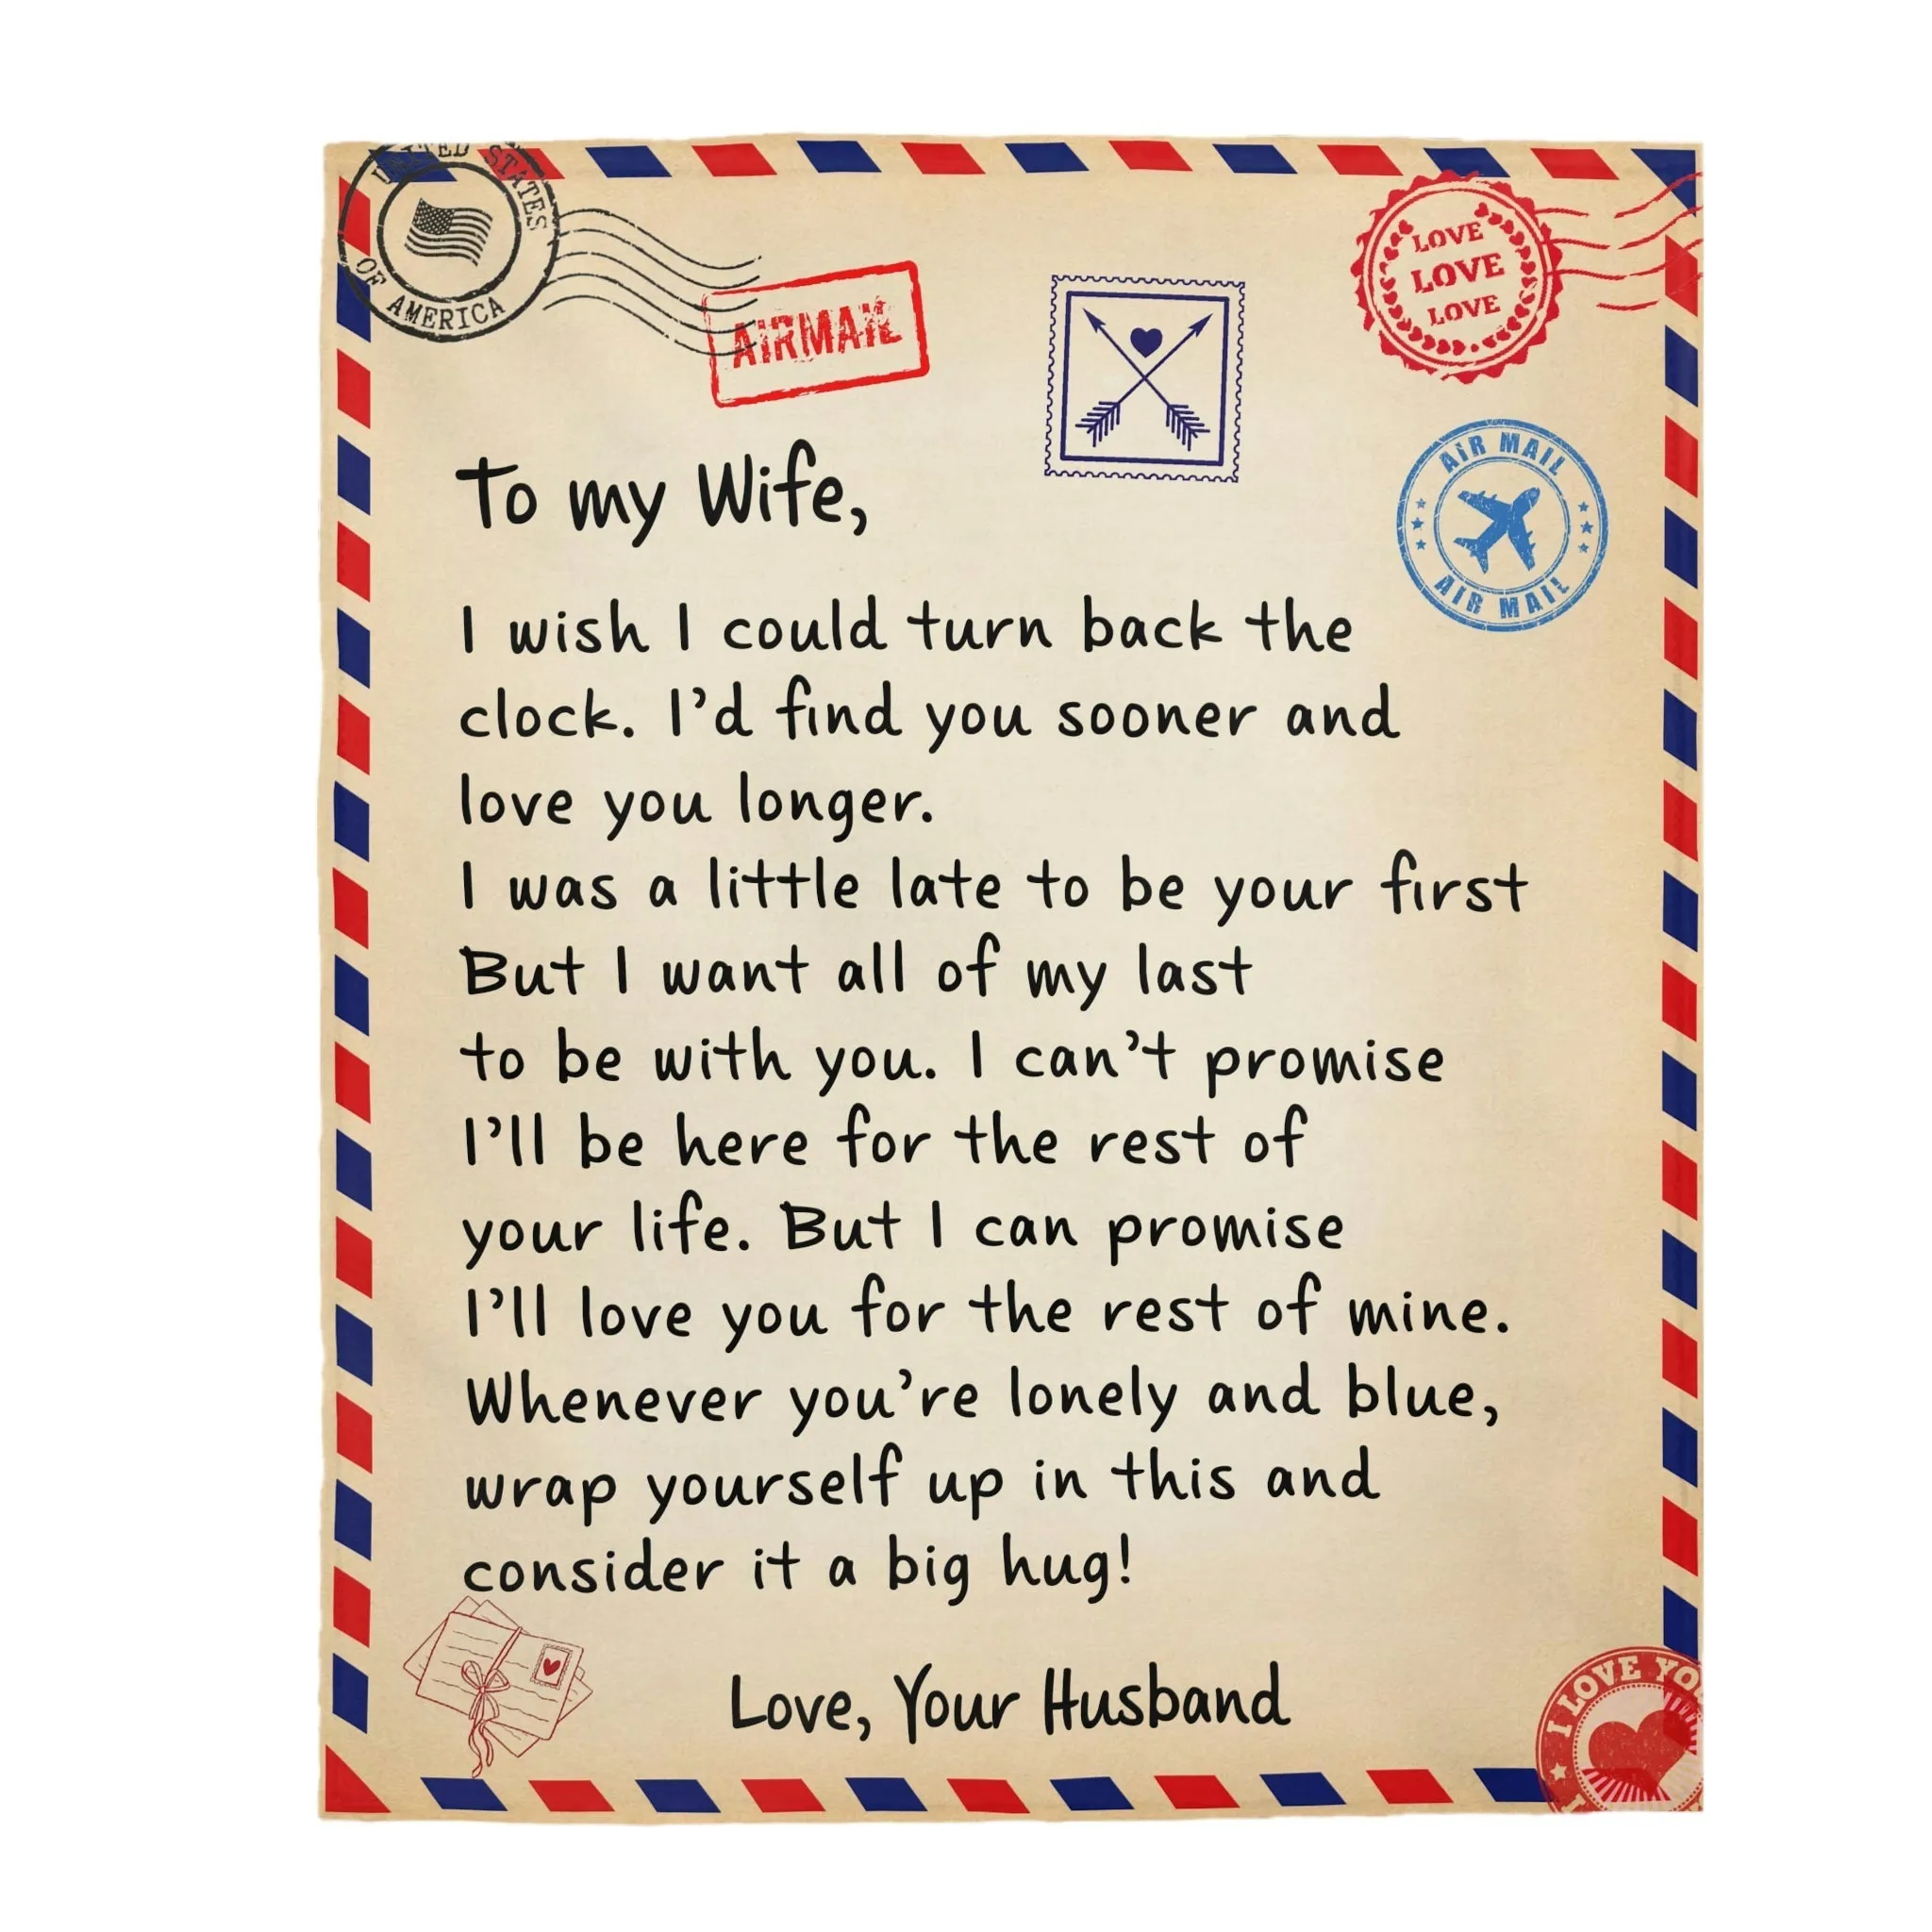 UNITED STATES
OF AMERICA
AIRMAIL
LOVE
LOVE
LOVE
AIR MAIL
AIR MAIL
To my Wife,
I wish I could turn back the
clock. I'd find you sooner and
love you longer.
I was a little late to be your first
But I want all of my last
to be with you. I can't promise
I'll be here for the rest of
your life. But I can promise
I'll love you for the rest of mine.
Whenever you're lonely and blue,
wrap yourself up in this and
consider it a big hug!
Love, Your Husband
I LOVE YO